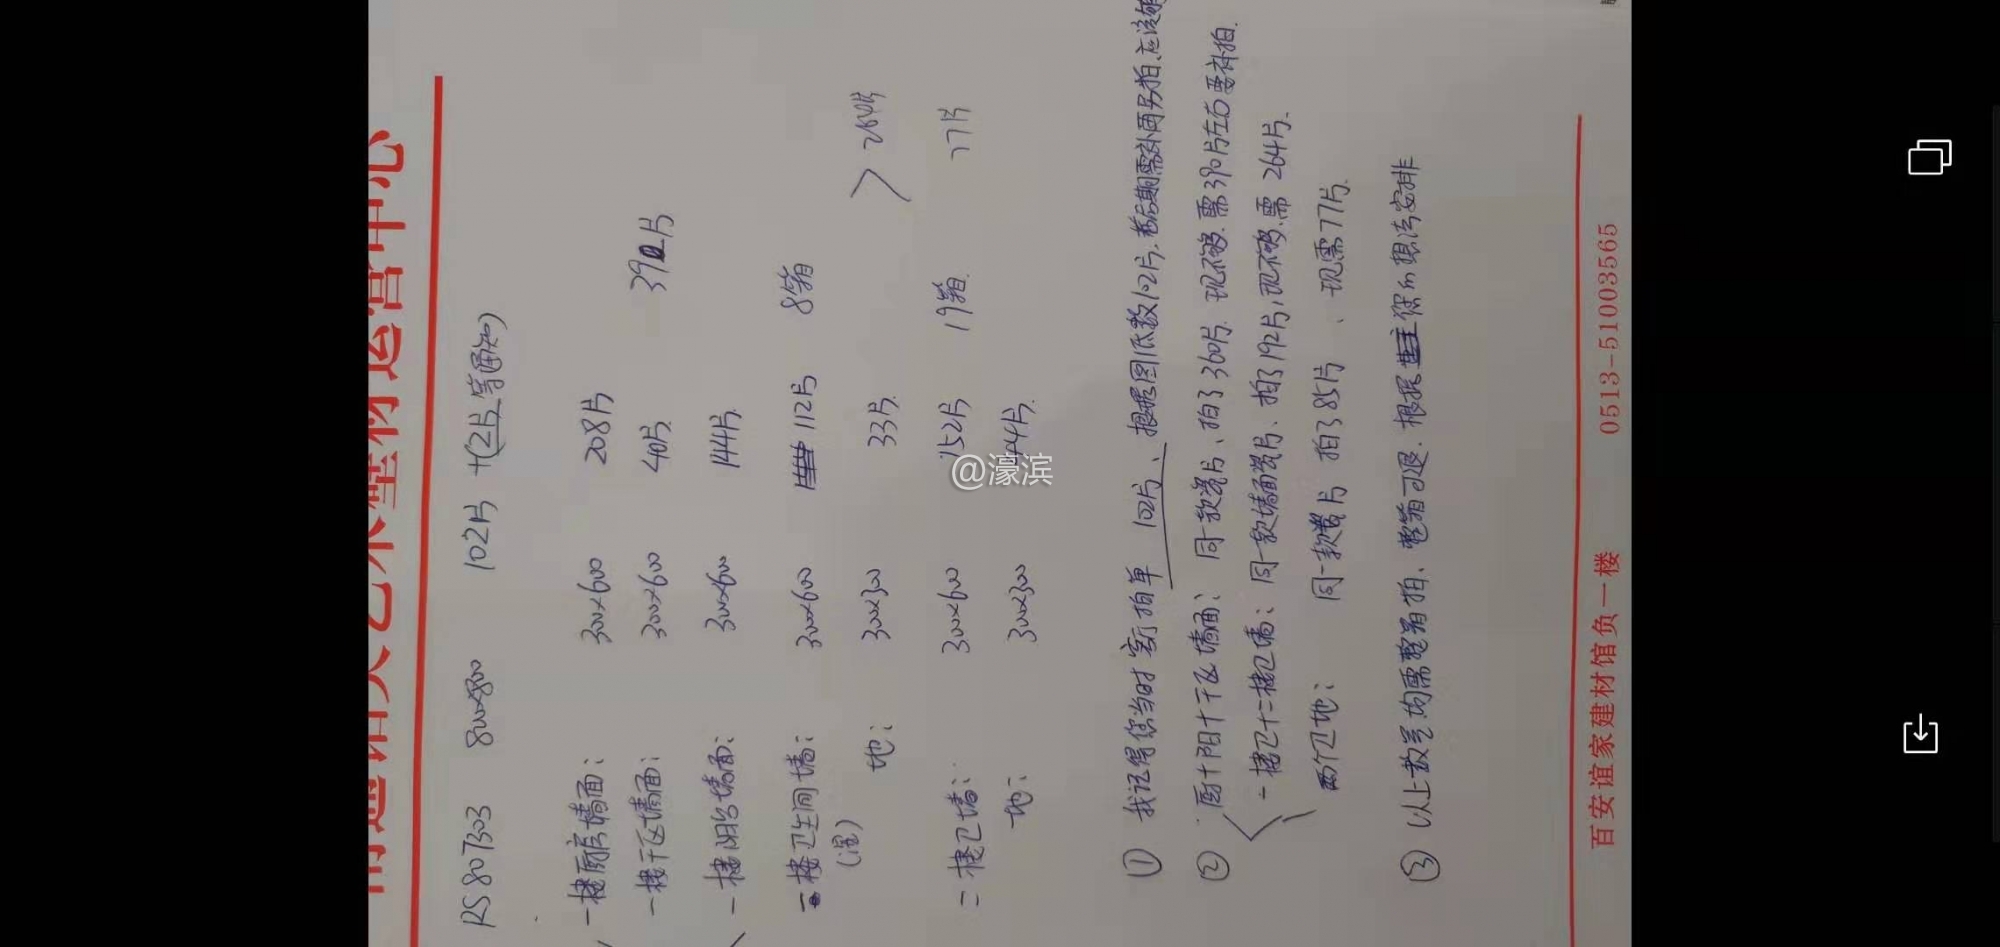 南通诺贝艺术壁材运营中心
RS807303 800×800 102片 +(2片等通知)
一楼厨房墙面: 300×600 208片
一楼干区墙面: 300×600 40片 392片
一楼阳台墙面: 300×600 144片
一楼卫生间墙: 300×600 112片 8箱
(湿)
地: 300×300 33片 > 264片
二楼卫墙: 300×600 152片 19箱 77片
地: 300×300 44片
① 我记得您当时客厅拍单 102片、根据图纸数102片,若后期需补再另拍.应该够
② 厨+阳+干区墙面: 同一款瓷片、拍了360片.现不够.需390片左右要补拍.
一楼卫+二楼卫墙: 同一款墙面瓷片、拍了192片,现不够.需 264片.
两个卫地: 同一款瓷片 拍了85片、现需77片.
③ 以上数量均需整箱拍、整箱可退.根据您的想法安排
百安谊家建材馆负一楼 0513-51003565
@濠滨